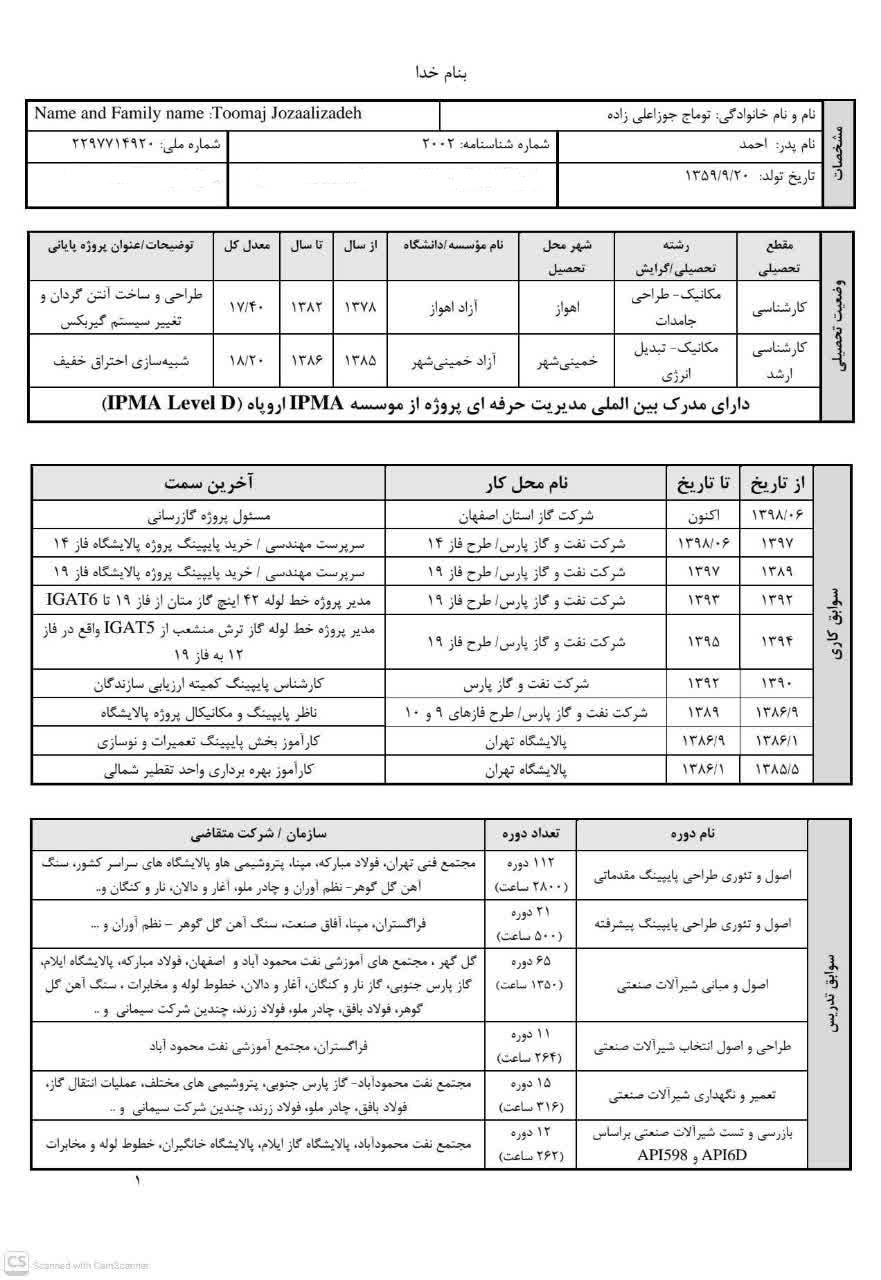 بنام خدا
مشخصات
نام و نام خانوادگی: توماج جوزاعلی زاده
Name and Family name :Toomaj Jozaalizadeh
نام پدر: احمد
شماره شناسنامه: ۲۰۰۲
شماره ملی: ۲۲۹۷۷۱۴۹۲۰
تاریخ تولد: ۱۳۵۹/۹/۲۰
وضعیت تحصیلی
مقطع تحصیلی
رشته تحصیلی/گرایش
شهر محل تحصیل
نام مؤسسه/دانشگاه
از سال
تا سال
معدل کل
توضیحات/عنوان پروژه پایانی
کارشناسی
مکانیک- طراحی جامدات
اهواز
آزاد اهواز
۱۳۷۸
۱۳۸۲
۱۷/۴۰
طراحی و ساخت آنتن گردان و
تغییر سیستم گیربکس
کارشناسی ارشد
مکانیک- تبدیل انرژی
خمینی‌شهر
آزاد خمینی‌شهر
۱۳۸۵
۱۳۸۶
۱۸/۲۰
شبیه‌سازی احتراق خفیف
دارای مدرک بین المللی مدیریت حرفه ای پروژه از موسسه IPMA اروپاه (IPMA Level D)
سوابق کاری
از تاریخ
تا تاریخ
نام محل کار
آخرین سمت
۱۳۹۸/۰۶
اکنون
شرکت گاز استان اصفهان
مسئول پروژه گازرسانی
۱۳۹۷
۱۳۹۸/۰۶
شرکت نفت و گاز پارس/ طرح فاز ۱۴
سرپرست مهندسی / خرید پایپینگ پروژه پالایشگاه فاز ۱۴
۱۳۸۹
۱۳۹۷
شرکت نفت و گاز پارس/ طرح فاز ۱۹
سرپرست مهندسی / خرید پایپینگ پروژه پالایشگاه فاز ۱۹
۱۳۹۲
۱۳۹۳
شرکت نفت و گاز پارس/ طرح فاز ۱۹
مدیر پروژه خط لوله ۴۲ اینچ گاز متان از فاز ۱۹ تا IGAT6
۱۳۹۴
۱۳۹۵
شرکت نفت و گاز پارس/ طرح فاز ۱۹
مدیر پروژه خط لوله گاز ترش منشعب از IGAT5 واقع در فاز
۱۲ به فاز ۱۹
۱۳۹۰
۱۳۹۲
شرکت نفت و گاز پارس
کارشناس پایپینگ کمیته ارزیابی سازندگان
۱۳۸۶/۹
۱۳۸۹
شرکت نفت و گاز پارس/ طرح فازهای ۹ و ۱۰
ناظر پایپینگ و مکانیکال پروژه پالایشگاه
۱۳۸۶/۱
۱۳۸۶/۹
پالایشگاه تهران
کارآموز بخش پایپینگ تعمیرات و نوسازی
۱۳۸۵/۵
۱۳۸۶/۱
پالایشگاه تهران
کارآموز بهره برداری واحد تقطیر شمالی
سوابق تدریس
نام دوره
تعداد دوره
سازمان / شرکت متقاضی
اصول و تئوری طراحی پایپینگ مقدماتی
۱۱۲ دوره
(۲۸۰۰ ساعت)
مجتمع فنی تهران، فولاد مبارکه، مپنا، پتروشیمی هاو پالایشگاه های سراسر کشور، سنگ
آهن گل گوهر- نظم آوران و چادر ملو، آغار و دالان، نار و کنگان و..
اصول و تئوری طراحی پایپینگ پیشرفته
۲۱ دوره
(۵۰۰ ساعت)
فراگستران، مپنا، آفاق صنعت، سنگ آهن گل گوهر – نظم آوران و ...
اصول و مبانی شیرآلات صنعتی
۶۵ دوره
(۱۳۵۰ ساعت)
گل گهر ، مجتمع های آموزشی نفت محمود آباد و اصفهان، فولاد مبارکه، پالایشگاه ایلام،
گاز پارس جنوبی، گاز نار و کنگان، آغار و دالان، خطوط لوله و مخابرات ، سنگ آهن گل
گوهر، فولاد بافق، چادر ملو، فولاد زرند، چندین شرکت سیمانی و ..
طراحی و اصول انتخاب شیرآلات صنعتی
۱۱ دوره
(۲۶۴ ساعت)
فراگستران، مجتمع آموزشی نفت محمود آباد
تعمیر و نگهداری شیرآلات صنعتی
۱۵ دوره
(۳۱۶ ساعت)
مجتمع نفت محمودآباد- گاز پارس جنوبی، پتروشیمی های مختلف، عملیات انتقال گاز،
فولاد بافق، چادر ملو، فولاد زرند، چندین شرکت سیمانی و ..
بازرسی و تست شیرآلات صنعتی براساس
API6D و API598
۱۲ دوره
(۲۶۲ ساعت)
مجتمع نفت محمودآباد، پالایشگاه گاز ایلام، پالایشگاه خانگیران، خطوط لوله و مخابرات
۱
CS Scanned with CamScanner